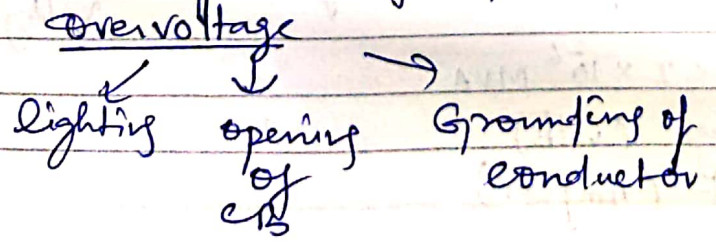 Overvoltage
lighting opening Grounding of
of conductor
CB